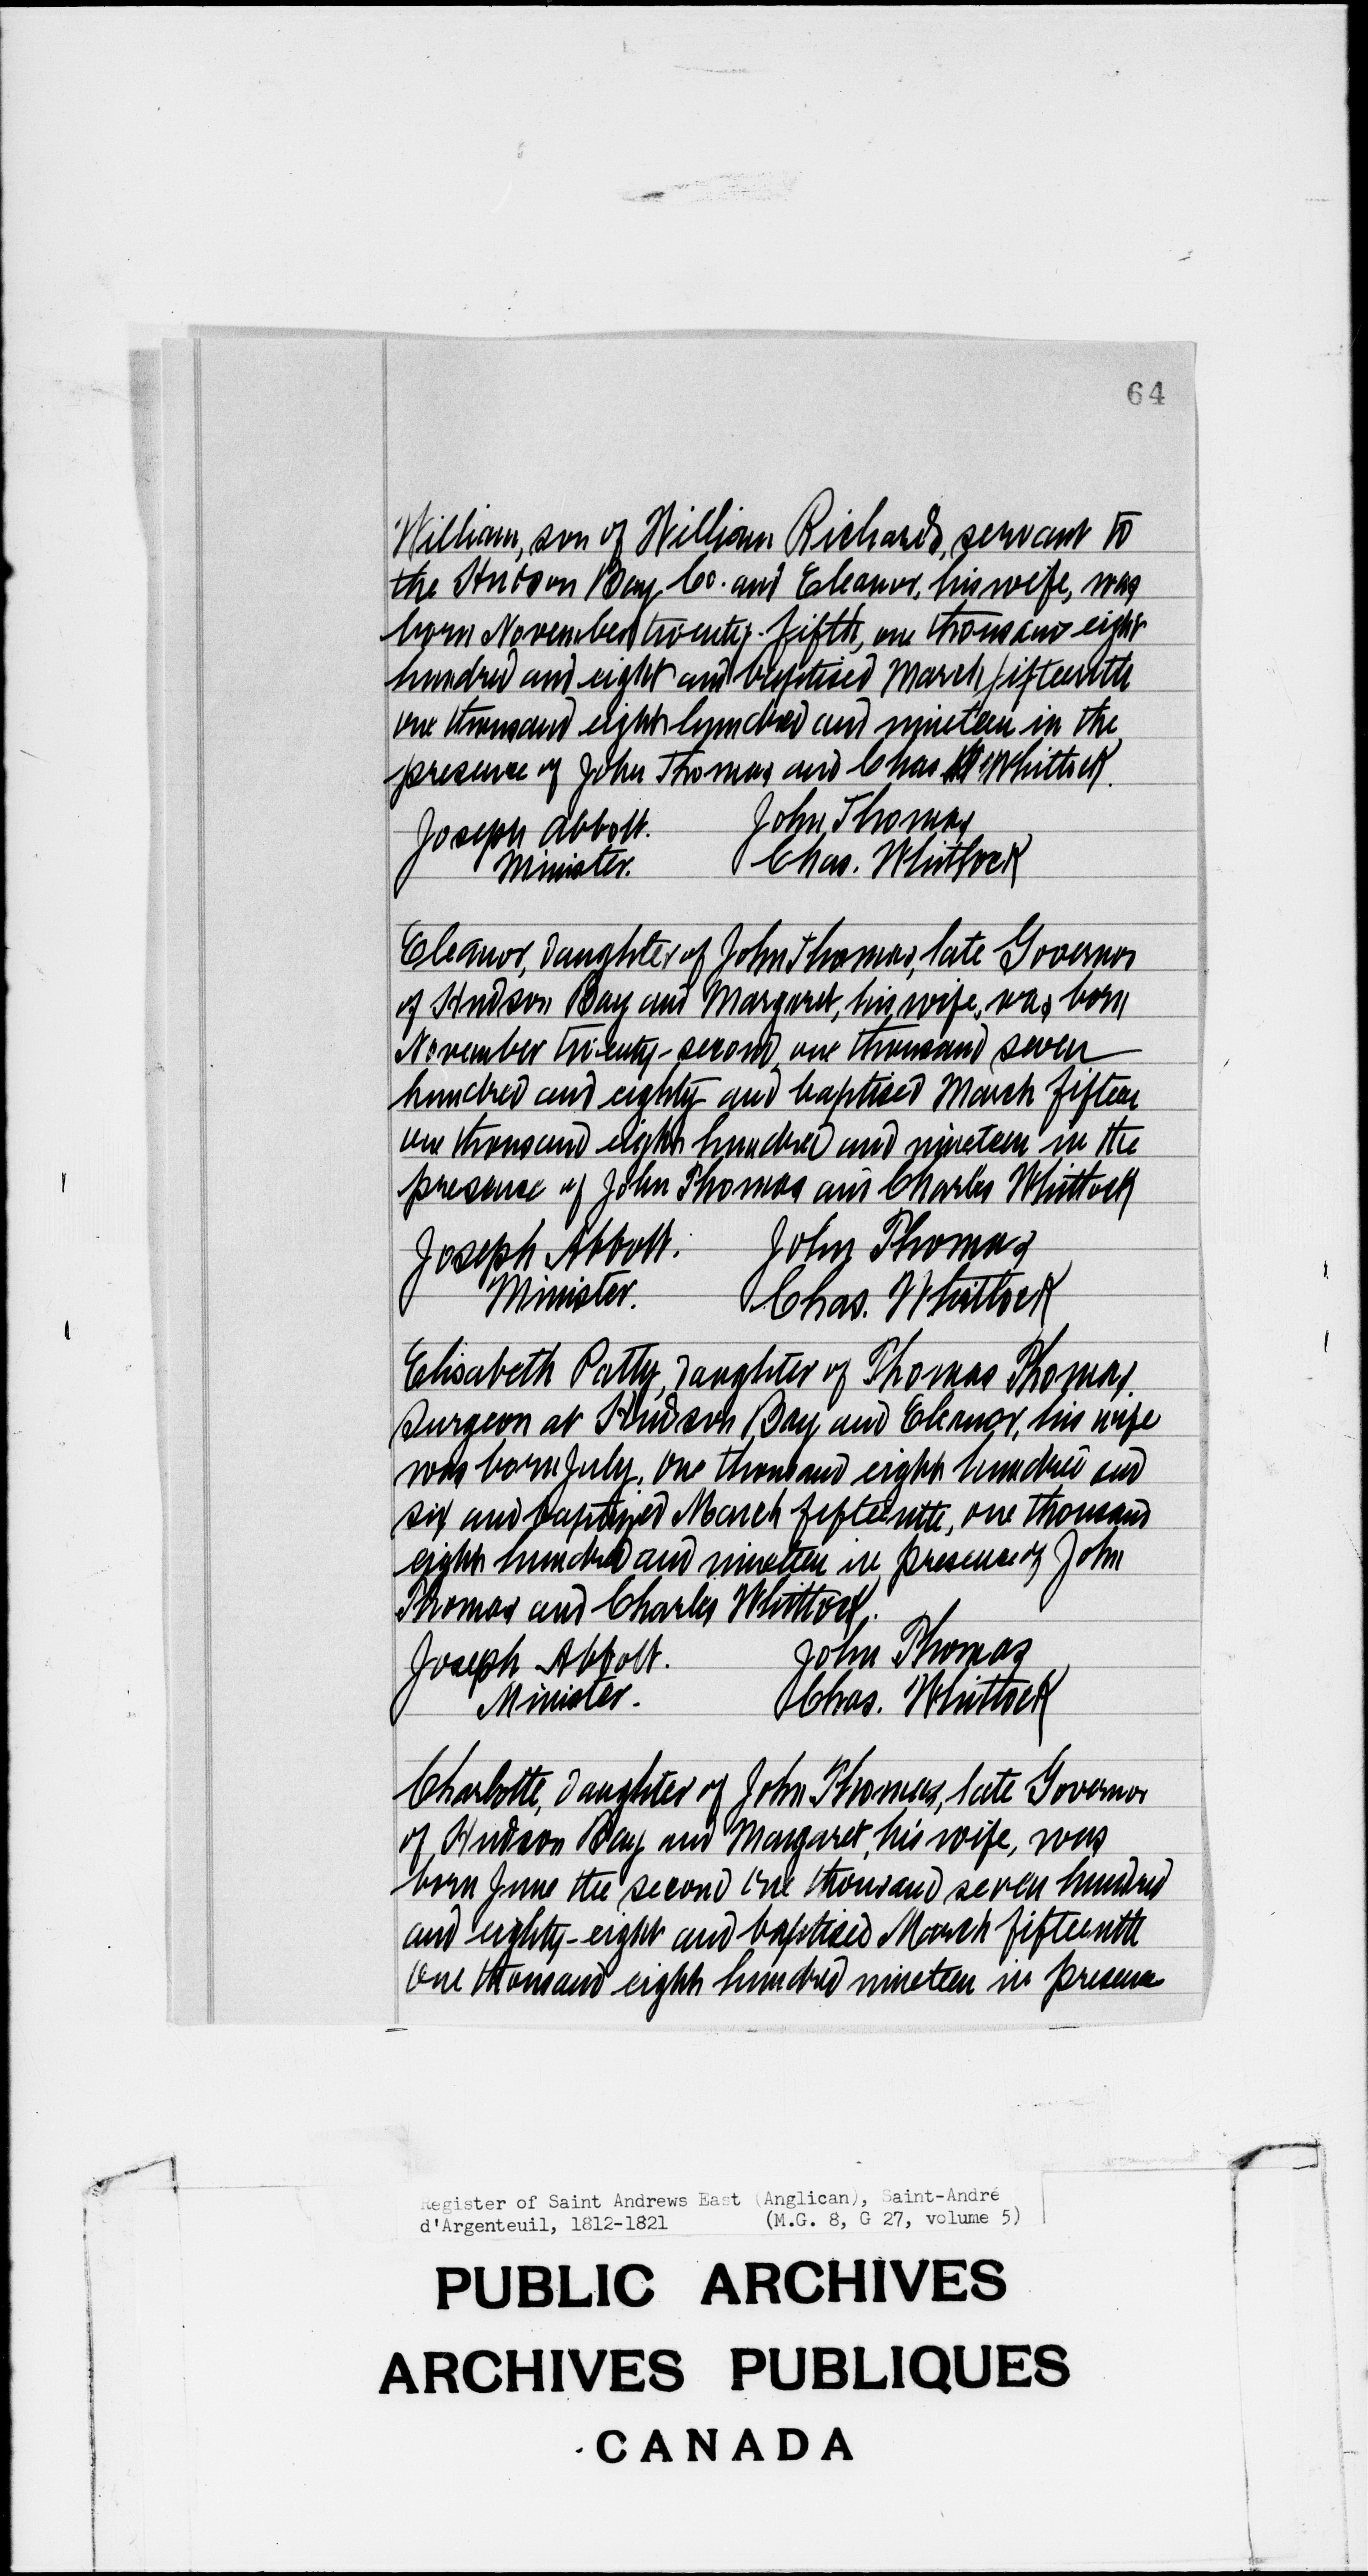 64
William, son of William Richards, servant to
the Hudson Bay Co. and Eleanor, his wife, was
born November twenty-fifth, one thousand eight
hundred and eight and baptised March fifteenth
one thousand eight hundred and nineteen in the
presence of John Thomas and Chas Whittock.
Joseph Abbott. John Thomas
Minister. Chas. Whittock
Eleanor, daughter of John Thomas, late Governor
of Hudson Bay and Margaret, his wife, was born
November twenty-second, one thousand seven
hundred and eighty and baptised March fifteen
one thousand eight hundred and nineteen in the
presence of John Thomas and Charles Whittock
Joseph Abbott. John Thomas
Minister. Chas. Whittock
Elisabeth Patty, daughter of Thomas Thomas,
surgeon at Hudson Bay and Eleanor, his wife
was born July, one thousand eight hundred and
six and baptized March fifteenth, one thousand
eight hundred and nineteen in presence of John
Thomas and Charles Whittock.
Joseph Abbott. John Thomas
Minister. Chas. Whittock
Charlotte, daughter of John Thomas, late Governor
of Hudson Bay and Margaret, his wife, was
born June the second one thousand seven hundred
and eighty-eight and baptised March fifteenth
one thousand eight hundred nineteen in presence
Register of Saint Andrews East (Anglican), Saint-André
d'Argenteuil, 1812-1821 (M.G. 8, G 27, volume 5)
PUBLIC ARCHIVES
ARCHIVES PUBLIQUES
CANADA